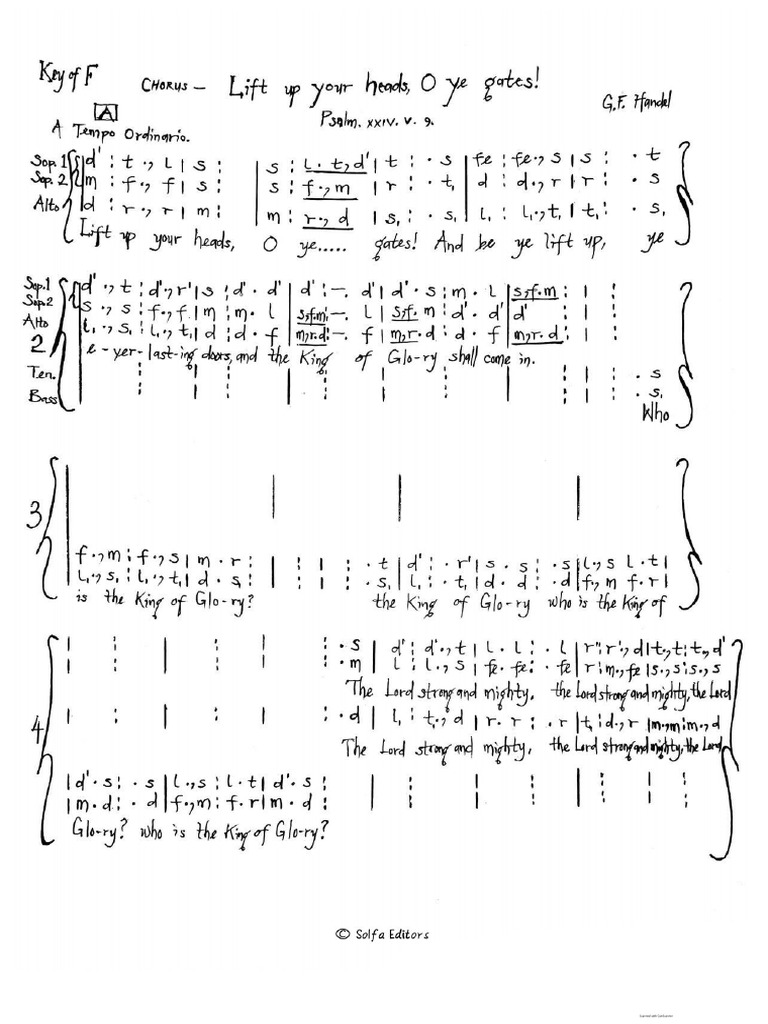 Key of F
CHORUS – Lift up your heads, O ye gates!
G.F. Handel
Psalm. XXIV. v. 9.
A
A Tempo Ordinario.
Sop. 1 d' : t ., l | s : | s : l . t, d' | t : . s | fe : fe ., s | s : . t
Sop. 2 m : f ., f | s : | s : f ., m | r : . t, | d : d ., r | r : . s
Alto d : r ., r | m : | m : r ., d | s, : . s, | l, : l, ., t, | t, : . s,
Lift up your heads, O ye..... gates! And be ye lift up, ye
Sop.1 d' ., t : d' ., r' | s : d' . d' | d' : – . d' | d' . s : m . l | s,f.m : | :
Sop2 s ., s : f ., f | m : m . l | s,f.m : – . l | s,f. m : d' . d' | d' : | :
Alto l, ., s, : l, ., t, | d : d . f | m,r.d : – . f | m,r. d : d . f | m,r.d : | :
2
e - ver-last-ing doors, and the King of Glo-ry shall come in.
Ten. . s
Bass . s,
Who
3
f ., m : f ., s | m . r : | : | : . t | d' : . r' | s . s : . s | l ., s l . t |
l, ., s, : l, ., t, | d . s, : | : | : . s, | l, : . t, | d . d : . d | f ., m f . r |
is the King of Glo-ry? the King of Glo-ry who is the King of
: . s | d' : d' ., t | l . l : . l | r' : r' ., d' | t ., t : t ., d'
: . m | l : l ., s | fe . fe : . fe | r : m ., fe | s ., s : s ., s
The Lord strong and mighty, the Lord strong and mighty, the Lord
: . d | l, : t, ., d | r . r : . r | t, : d ., r | m ., m : m ., d
4
The Lord strong and mighty, the Lord strong and mighty, the Lord
| d' . s : . s | l ., s : l . t | d' . s :
| m . d : . d | f ., m : f . r | m . d :
Glo-ry? who is the King of Glo-ry?
© Solfa Editors